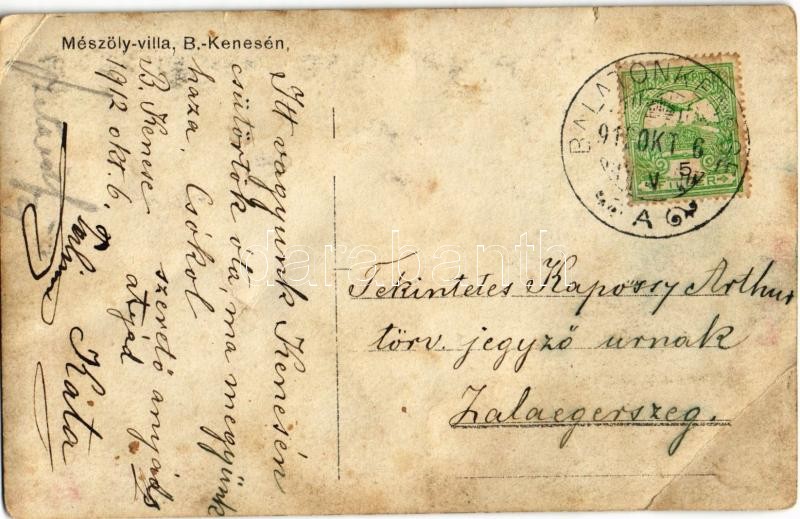 Mészöly-villa, B.-Kenesén,
Itt vagyunk Kenesén
csütörtök óta, ma megyünk
haza. Csókol
szerető anyád s
atyád
B. Kenese
1912 okt. 6.
Kata
BALATONKENESE
912 OKT 6
A
5
FILLÉR
Tekintetes Kapossy Arthur
törv. jegyző urnak
Zalaegerszeg.
darabanth